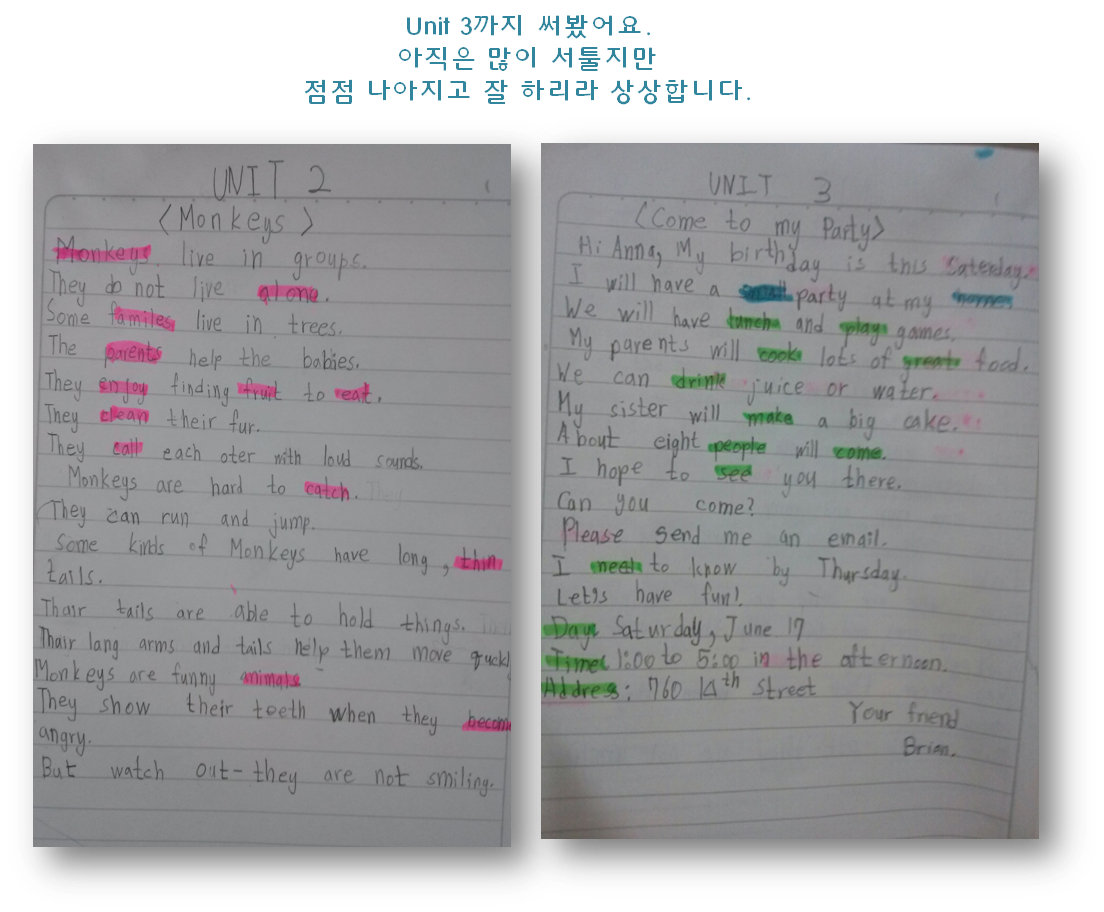 Unit 3까지 써봤어요.
아직은 많이 서툴지만
점점 나아지고 잘 하리라 상상합니다.
UNIT 2
<Monkeys>
Monkeys. live in groups.
They do not live alone.
Some familes live in trees.
The parents help the babies.
They enjoy finding fruit to eat.
They clean their fur.
They call each oter with loud sounds.
Monkeys are hard to catch.
They can run and jump.
Some kinds of Monkeys have long, thin
tails.
Thair tails are able to hold things.
Thair lang arms and tails help them move
Monkeys are funny animals
They show their teeth when they become
angry.
But watch out- they are not smiling.
UNIT 3
<Come to my Party>
Hi Anna, My birthday is this Saterday.
I will have a small party at my
We will have lunch and play games.
My parents will cook lots of great food.
We can drink juice or water.
My sister will make a big cake.
About eight people will come.
I hope to see you there.
Can you come?
Please send me an email.
I need to know by Thursday.
Let's have fun!
Day: Saturday, June 17
Time: 1:00 to 5:00 in the afternoon.
Address: 760 14th street
Your friend
Brian.